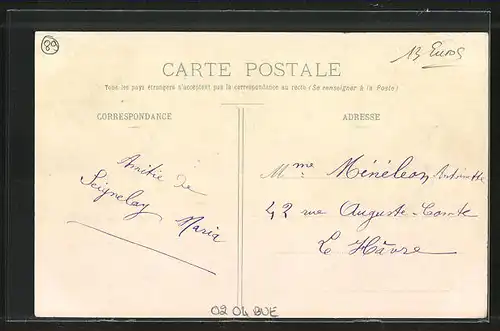 89
13 Euros
CARTE POSTALE
Tous les pays étrangers n'acceptent pas la correspondance au recto (Se renseigner à la Poste)
CORRESPONDANCE
ADRESSE
Amitié de
Seignelay
Maria
Mme Ménéleon Antoinette
42 rue Auguste-Comte
Le Hâvre
02 04 BUE